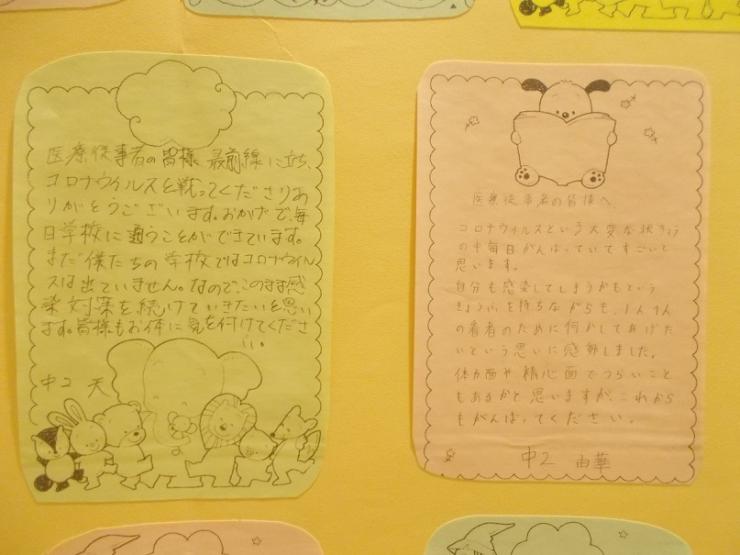 医療従事者の皆様、最前線に立ち、
コロナウイルスと戦ってくださりあ
りがとうございます。おかげで、毎
日学校に通うことができています。
まだ僕たちの学校ではコロナウイル
スは出ていません。なので、このまま感
染対策を続けていきたいと思い
ます。皆様もお体に気を付けてくださ
い。
中2 天
医療従事者の皆様へ
コロナウイルスという大変な状きょう
の中毎日がんばっていてすごいと
思います。
自分も感染してしまうかもという
きょうふを持ちながらも、1人1人
の着者のために何かしてあげた
いという思いに感動しました。
体力面や精心面でつらいこと
もあるかと思いますが、これから
もがんばってください。
中2 由華